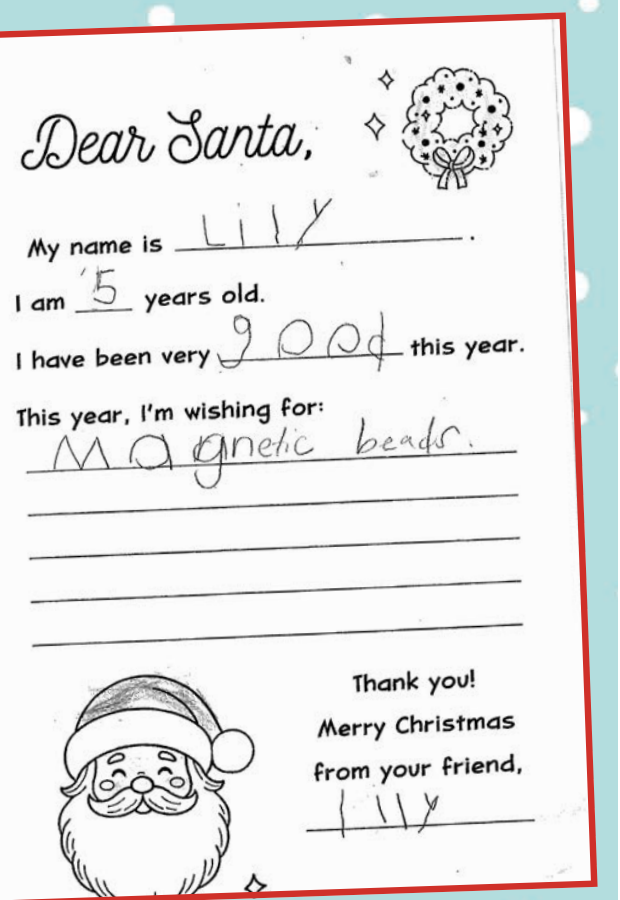 Dear Santa,
My name is Lily.
I am 5 years old.
I have been very good this year.
This year, I'm wishing for:
Magnetic beads.
Thank you!
Merry Christmas
from your friend,
lily